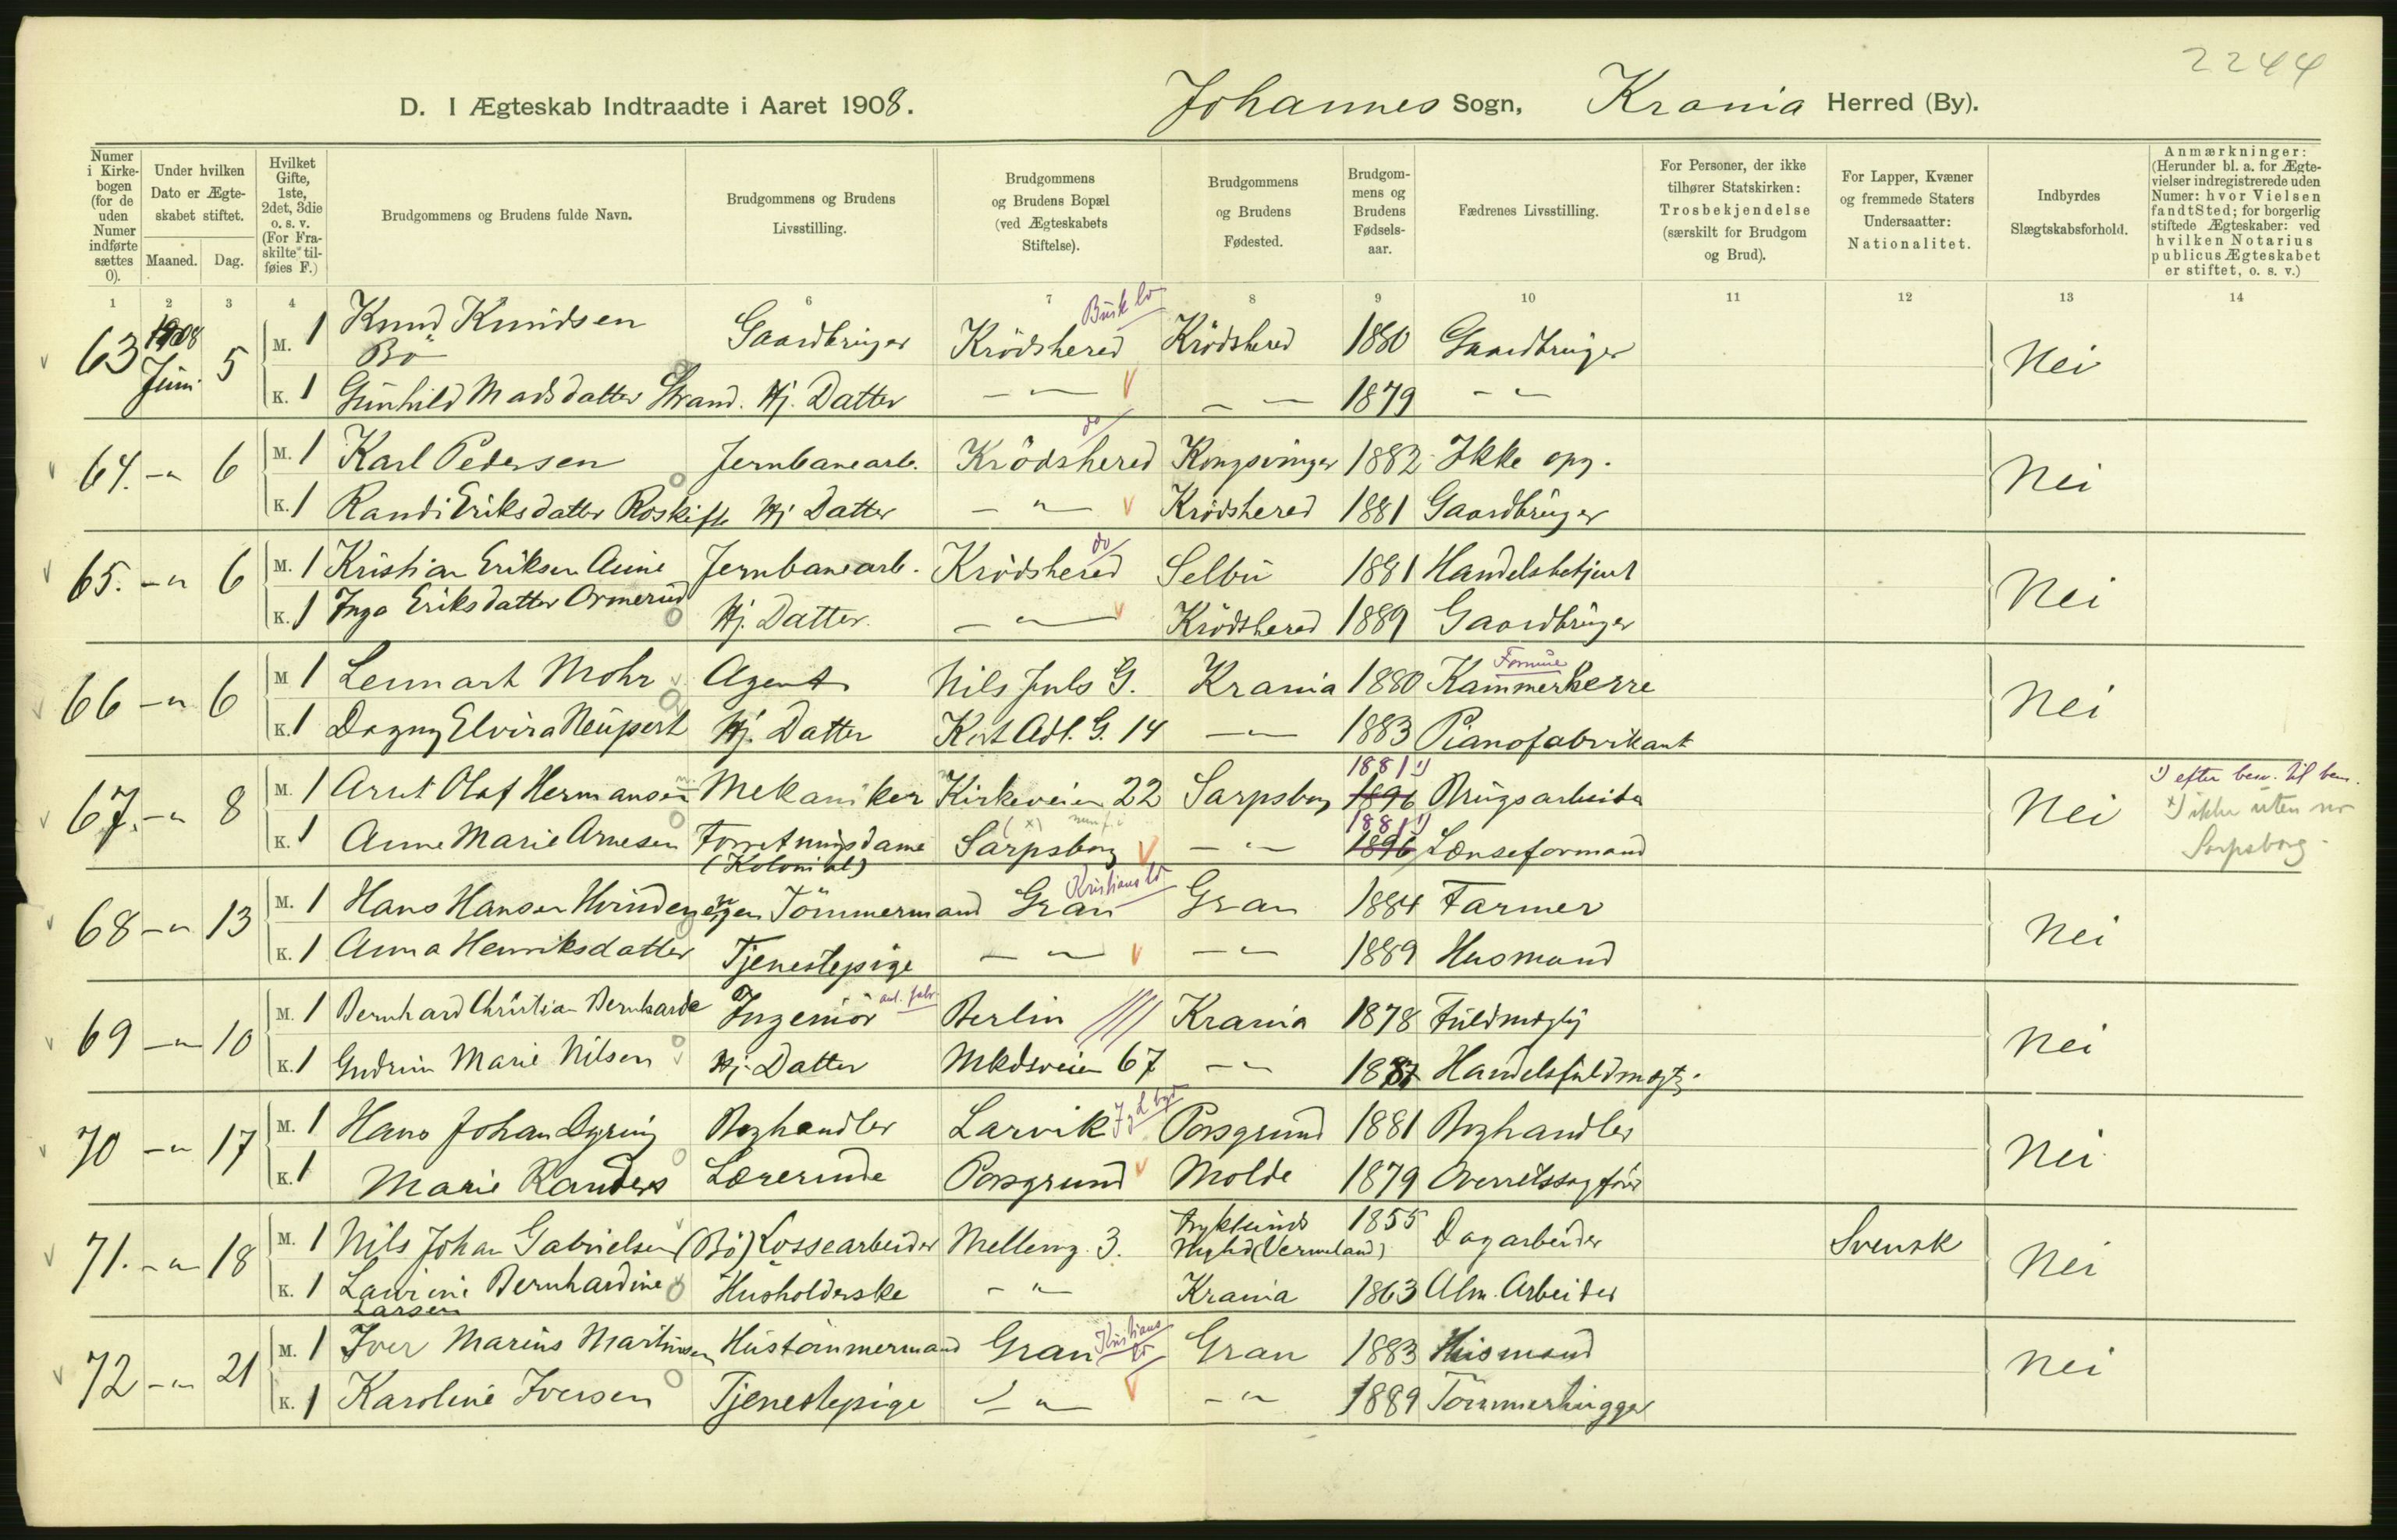 2244
D. I Ægteskab Indtraadte i Aaret 1908. Johannes Sogn, Krania Herred (By).
Numer i Kirkebogen (for de uden Numer indførte sættes 0).
Under hvilken Dato er Ægteskabet stiftet.
Maaned. Dag.
Hvilket Gifte, 1ste, 2det, 3die o. s. v. (For Fraskilte tilføies F.)
Brudgommens og Brudens fulde Navn.
Brudgommens og Brudens Livsstilling.
Brudgommens og Brudens Bopæl (ved Ægteskabets Stiftelse).
Brudgommens og Brudens Fødested.
Brudgommens og Brudens Fødselsaar.
Fædrenes Livsstilling.
For Personer, der ikke tilhører Statskirken: Trosbekjendelse (særskilt for Brudgom og Brud).
For Lapper, Kvæner og fremmede Staters Undersaatter: Nationalitet.
Indbyrdes Slægtskabsforhold.
Anmærkninger: (Herunder bl. a. for Ægtevielser indregistrerede uden Numer: hvor Vielsen fandt Sted; for borgerlig stiftede Ægteskaber: ved hvilken Notarius publicus Ægteskabet er stiftet, o. s. v.)
1 2 3 4 6 7 8 9 10 11 12 13 14
63 1908 Juni 5 M. 1 Knud Knudsen Bö Gaardbruger Krödshered Krödshered 1880 Gaardbruger Nei
K. 1 Gunhild Madsdatter Strand. Hj. Datter — " — — " — 1879 - " -
64. - " 6 M. 1 Karl Pedersen Jernbanearb. Krödshered do Kongsvinger 1882 Ikke opg. Nei
K. 1 Randi Eriksdatter Roskifte Hj Datter - " - Krödshered 1881 Gaardbruger
65. - " 6 M. 1 Kristian Eriksen Aune Jernbanearb. Krödshered do Selbu 1881 Handelsbetjent Nei
K. 1 Inga Eriksdatter Ormerud Hj. Datter. - " - Krödshered 1889 Gaardbruger
66 - " 6 M 1 Lennart Mohr Agent Nils Juls G. Krania 1880 Kammerherre Nei
K. 1 Dagny Elvira Neupert Hj. Datter Kort Adl. G. 14 - " - 1883 Pianofabrikant
67. - " 8 M. 1 Arnt Olaf Hermansen Mekaniker Kirkeveien 22 Sarpsborg 1896 1881 1) Brugsarbeider Nei 1) efter besv. til bem.
K. 1 Anne Marie Arnesen Forretningsdame (Kolonial) Sarpsborg - " - 1896 1881 1) Lænseformand x) ikke uten no Sarpsborg
68 - " 13 M. 1 Hans Hansen Hvinden Tömmermand Gran Kristians Gran 1884 Farmer Nei
K. 1 Anna Henriksdatter Tjenestepige - " - - " - 1889 Husmand
69 - " 10 M. 1 Bernhard Christian Bernhard Ingeniör Berlin Krania 1878 Fuldmægtig Nei
K. 1 Gudrun Marie Nilsen Hj. Datter Mkdsveien 67 - " - 1887 Handelsfuldmægt.
70 - " 17 M. 1 Hans Johan Dyring Boghandler Larvik Porsgrund 1881 Boghandler Nei
K. 1 Marie Randers Lærerinde Porsgrund Molde 1879 Overretssagförer
71. - " 18 M. 1 Nils Johan Gabrielsen (Bö) Lossearbeider Mellemg. 3. (Vermeland) 1855 Dagarbeider Svensk Nei
K. 1 Laurine Bernhardine Larsen Husholderske - " - Krania 1863 Alm. Arbeider
72 - " 21 M. 1 Iver Marius Martinsen Hustömmermand Gran Kristians Gran 1883 Husmand Nei
K. 1 Karoline Iversen Tjenestepige - " - - " - 1889 Tömmerhugger